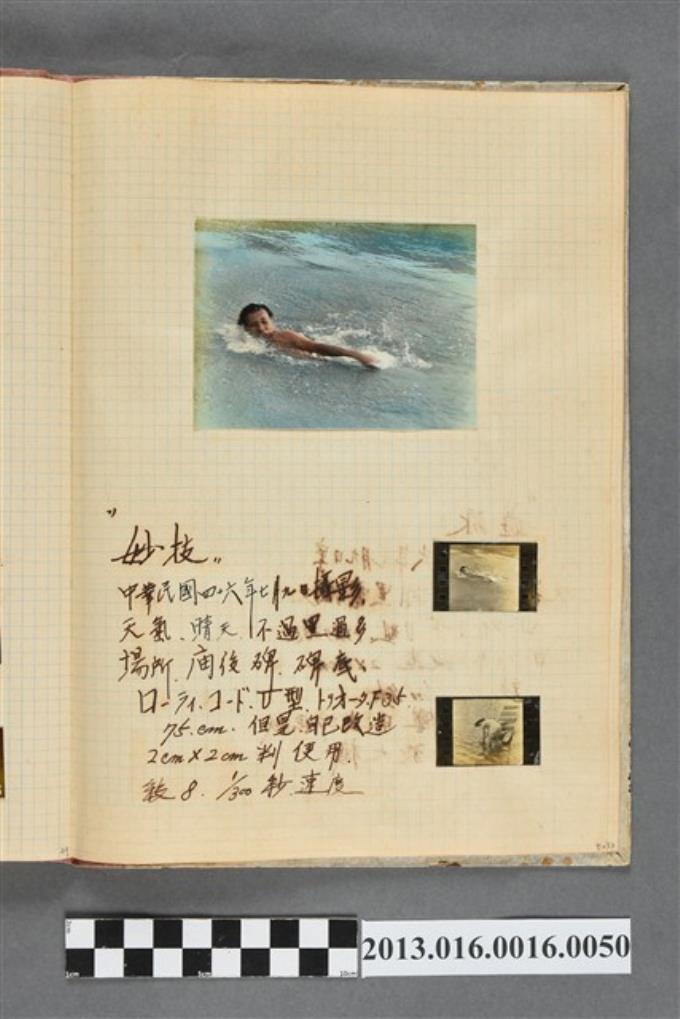 "妙技"
中華民國四十六年七月九日攝影、
天氣、晴天、不過里過多
場所、庙後 碑、碑底、
ローティ、コード、U型、トリオータ、F3.5.
75.cm. 但是、自己改造
2cm×2cm 判 使用.
8. 1/300 秒.速度
2013.016.0016.0050